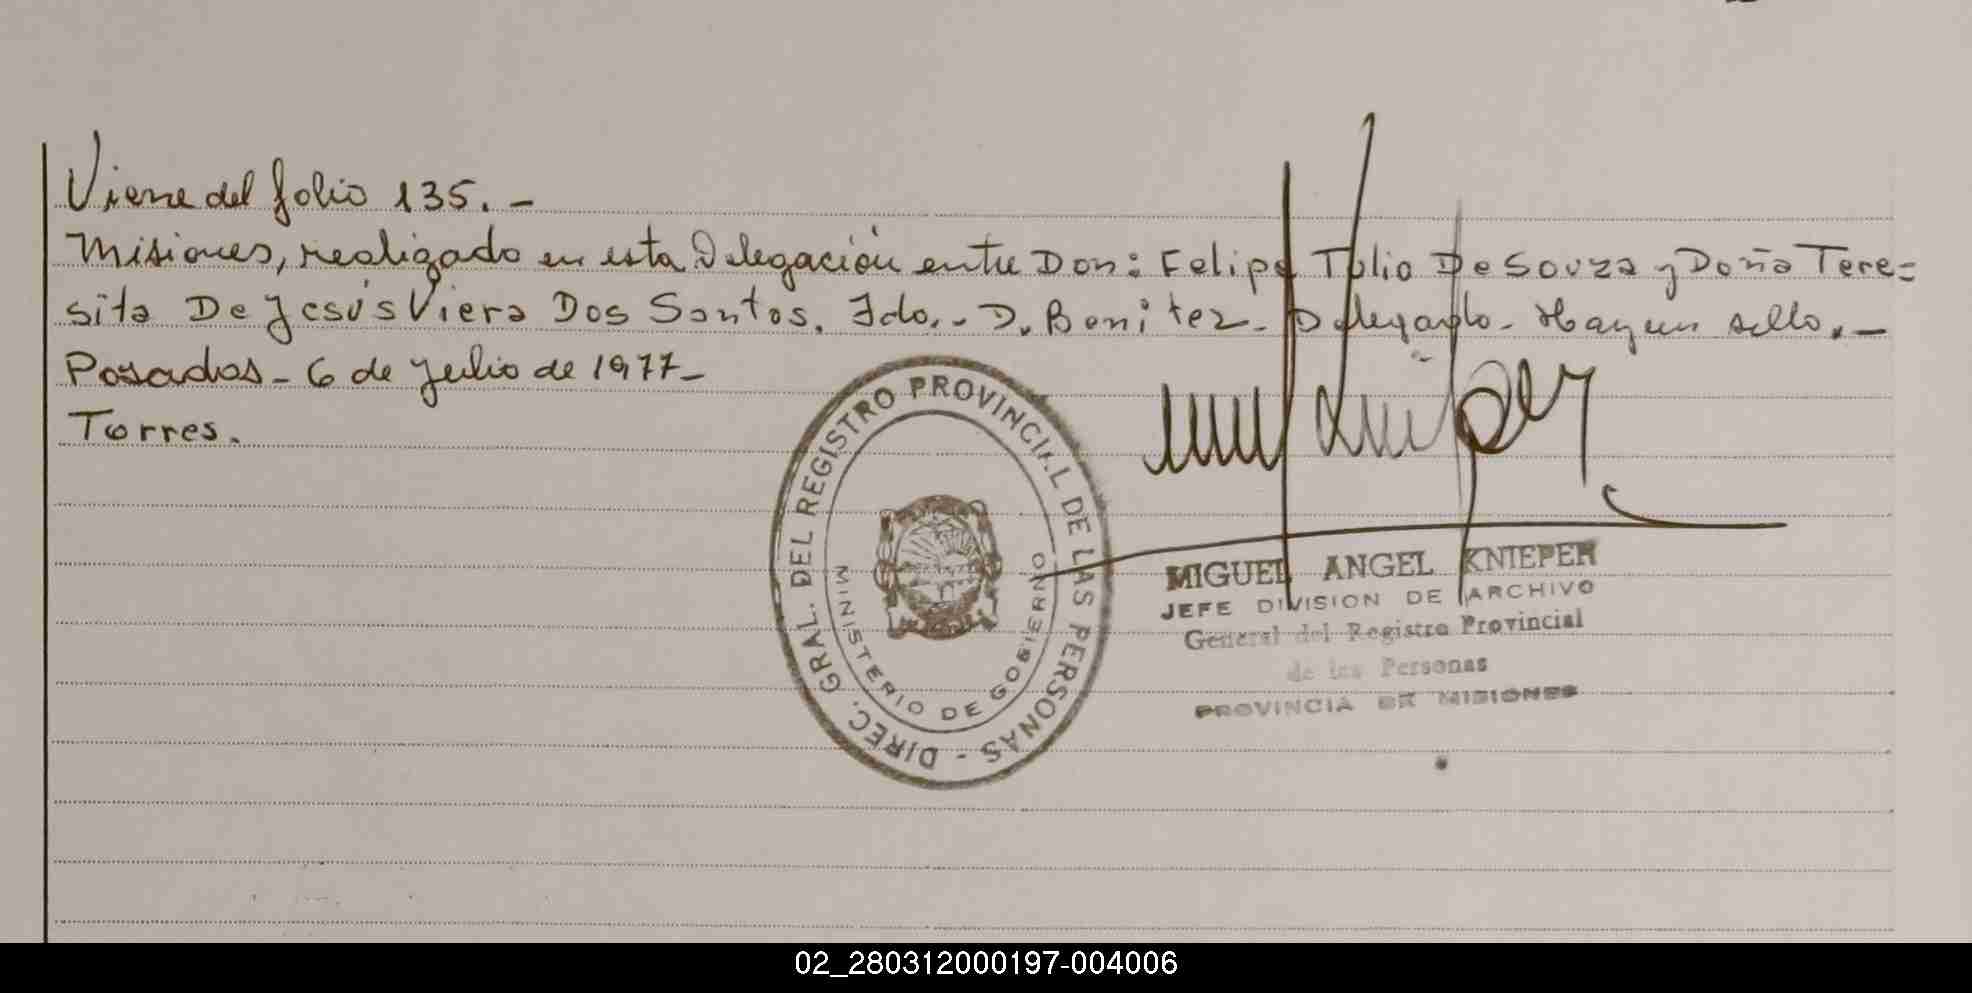 Viene del folio 135.-
Misiones, realizado en esta Delegación entre Don: Felipe Tulio De Souza y Doña Tere=
sita De Jesús Viera Dos Santos. Fdo.- D. Benitez- Delegado- Hay un sello.-
Posadas- 6 de Julio de 1977-
Torres.
DIREC. GRAL. DEL REGISTRO PROVINCIAL DE LAS PERSONAS -
MINISTERIO DE GOBIERNO
MIGUEL ANGEL KNIEPER
JEFE DIVISION DE ARCHIVO
General del Registro Provincial
de las Personas
PROVINCIA DE MISIONES
02_280312000197-004006